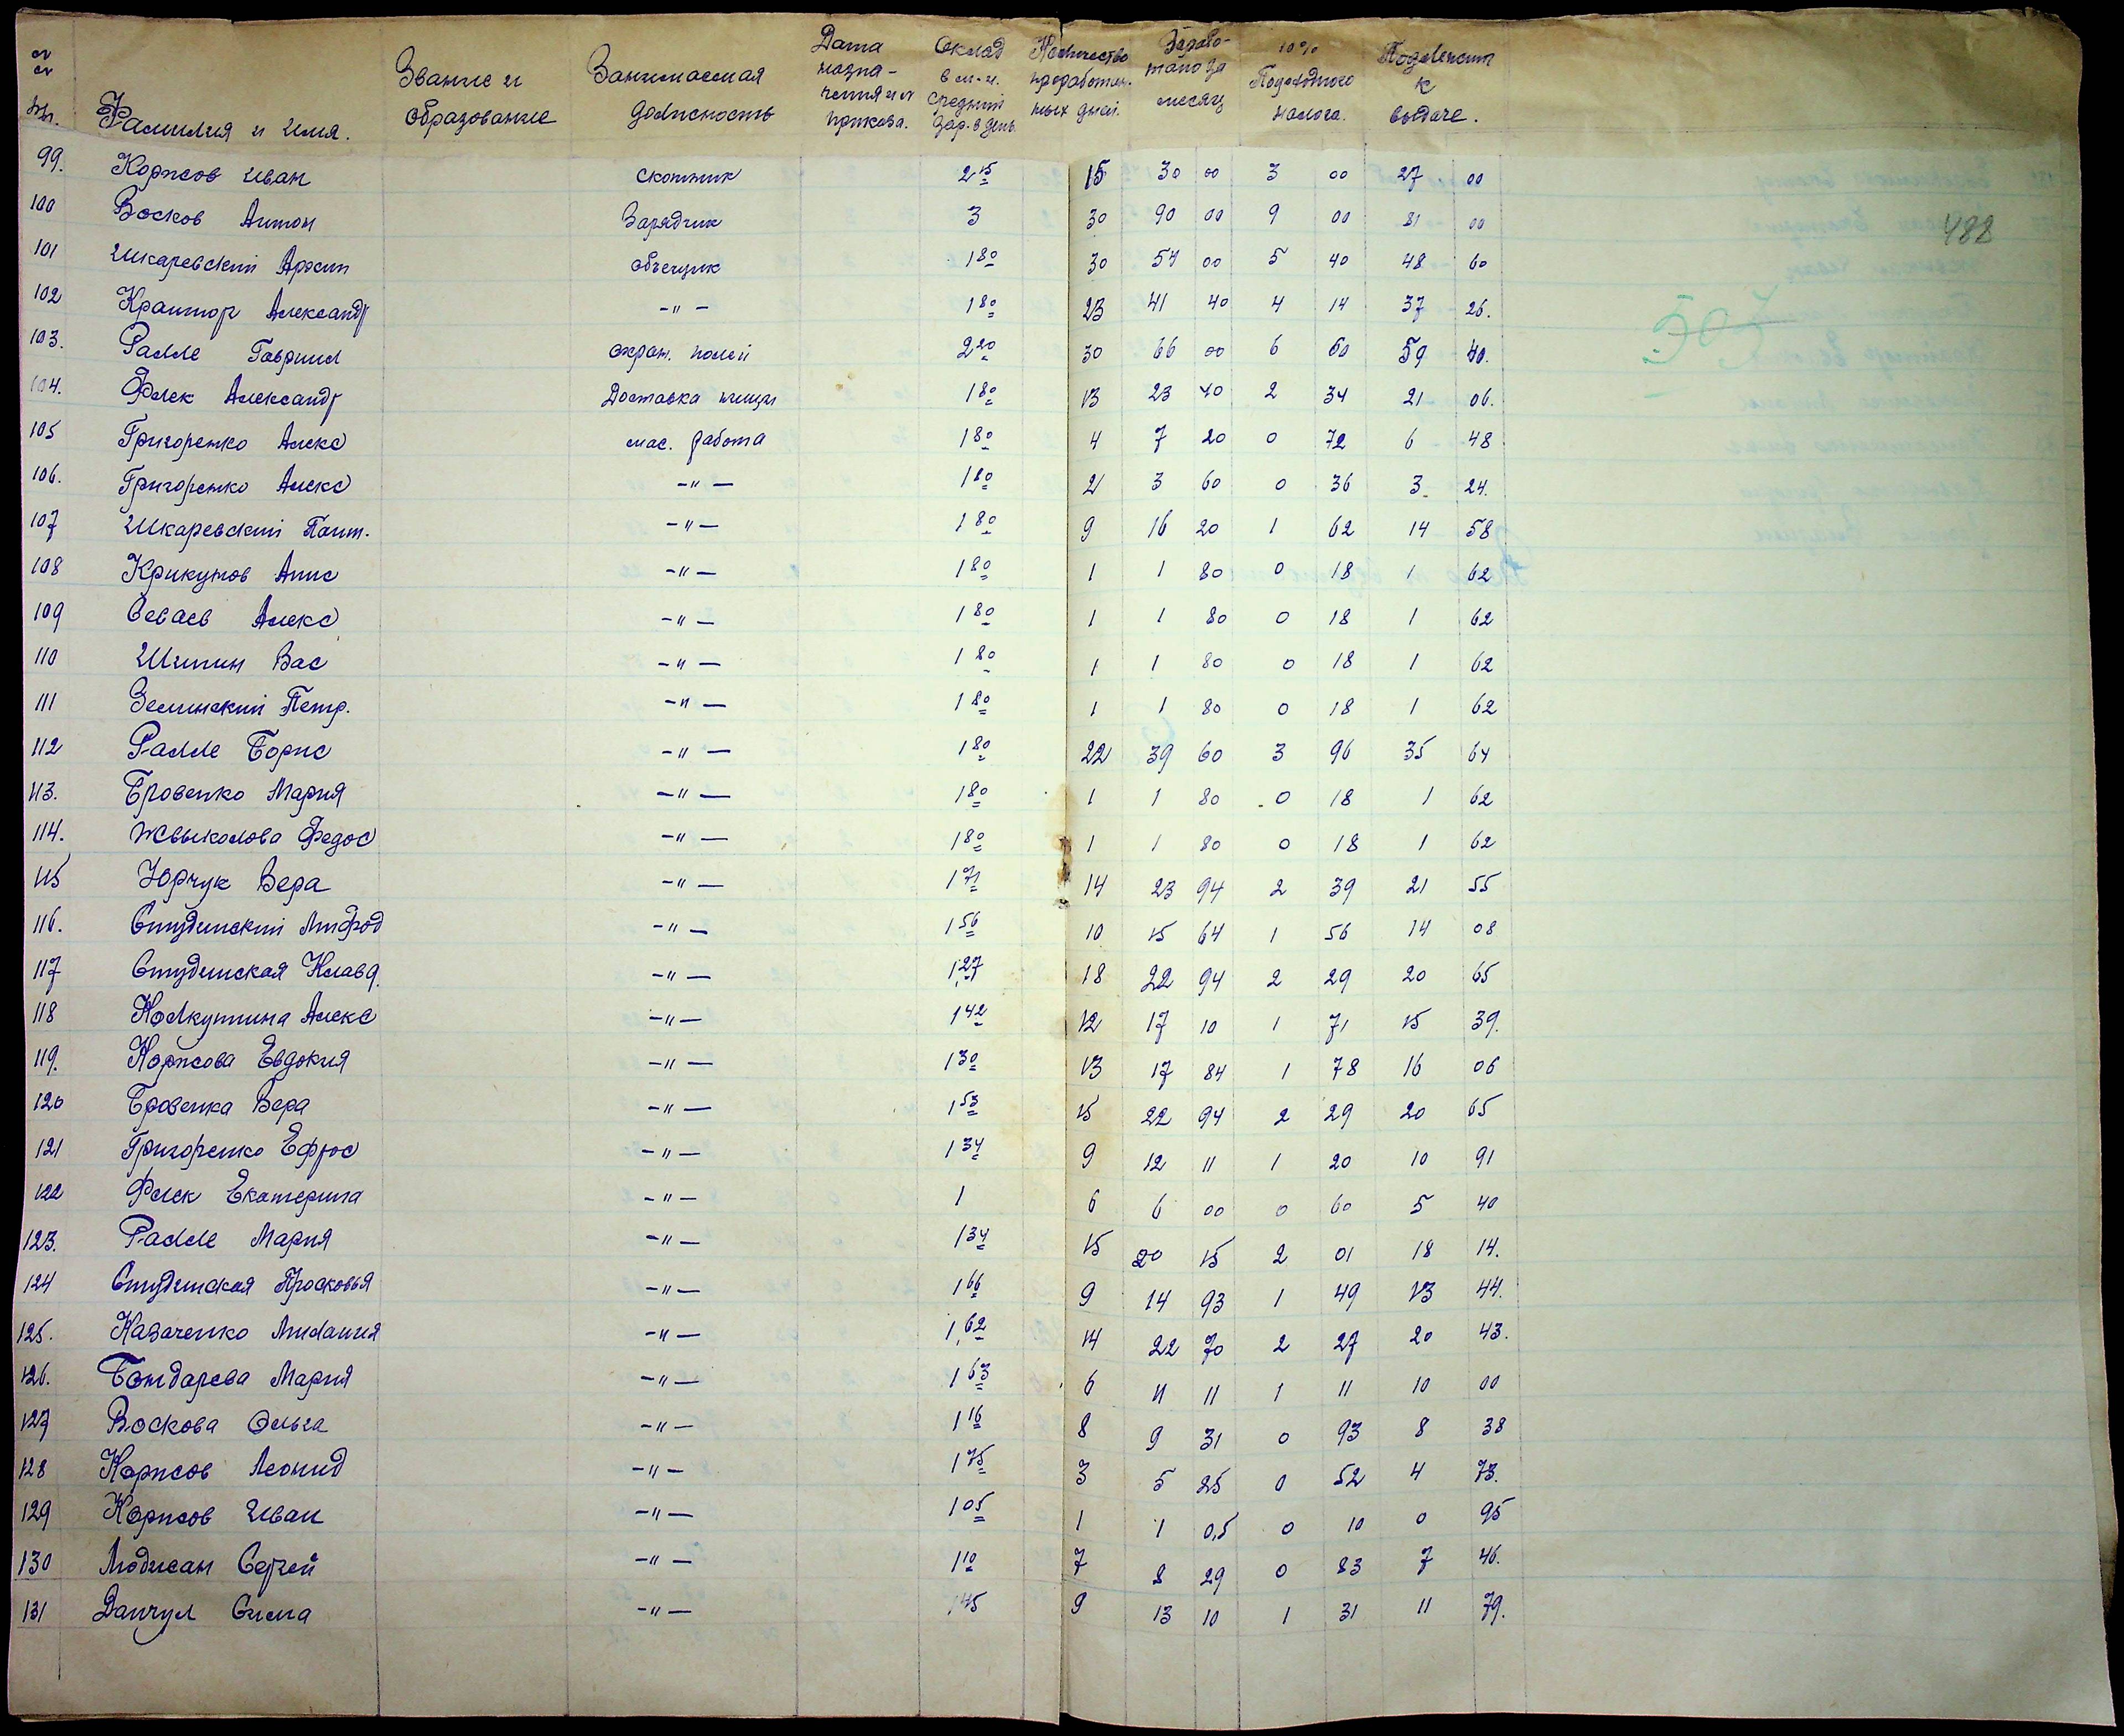 №№ пп. Фамилия и имя. Звание и образование Занимаемая должность Дата назначения и № приказа. Оклад в м-ц. средний зар. в день. Количество проработанных дней. Заработано за месяц 10% Подоходного налога. Подлежит к выдаче.
99. Коржов Иван скотник 2 15 15 30 00 3 00 27 00
100 Восков Антон Зарядчик 3 30 90 00 9 00 81 00
488
101 Шкаревский Архип объещик 1 80 30 54 00 5 40 48 60
102 Крантор Александр -"- 1 80 23 41 40 4 14 37 26.
103. Ралле Гавриил охран. полей 2 20 30 66 00 6 60 59 40.
507
104. Флек Александр Доставка пищи 1 80 13 23 40 2 34 21 06.
105 Григоренко Алекс мас. работа 1 80 4 7 20 0 72 6 48
106. Григоренко Алекс -"- 1 80 2 3 60 0 36 3 24.
107 Шкаревский Пант. -"- 1 80 9 16 20 1 62 14 58
108 Крикунов Анис -"- 1 80 1 1 80 0 18 1 62
109 Севаев Алекс -"- 1 80 1 1 80 0 18 1 62
110 Шипин Вас -"- 1 80 1 1 80 0 18 1 62
111 Зелинский Петр. -"- 1 80 1 1 80 0 18 1 62
112 Ралле Борис -"- 1 80 22 39 60 3 96 35 64
113. Бровенко Мария -"- 1 80 1 1 80 0 18 1 62
114. Жвыколова Федос -"- 1 80 1 1 80 0 18 1 62
115 Юрчук Вера -"- 1 71 14 23 94 2 39 21 55
116. Студинский Мифод -"- 1 56 10 15 64 1 56 14 08
117 Студинская Клавд. -"- 1,27 18 22 94 2 29 20 65
118 Колкутина Алекс -"- 1 42 12 17 10 1 71 15 39.
119. Коржова Евдокия -"- 1 30 13 17 84 1 78 16 06
120 Бровенка Вера -"- 1 53 15 22 94 2 29 20 65
121 Григоренко Ефрос -"- 1 34 9 12 11 1 20 10 91
122 Флек Екатерина -"- 1 6 6 00 0 60 5 40
123. Ралле Мария -"- 1 34 15 20 15 2 01 18 14.
124 Студинская Просковья -"- 1 66 9 14 93 1 49 13 44.
125. Казаченко Милания -"- 1,62 14 22 70 2 27 20 43.
126. Бондарева Мария -"- 1 63 6 11 11 1 11 10 00
127 Воскова Ольга -"- 1 16 8 9 31 0 93 8 38
128 Коржов Леонид -"- 1 75 3 5 25 0 52 4 73.
129 Коржов Иван -"- 1 05 1 1 0,5 0 10 0 95
130 Модисан Сергей -"- 1 10 7 8 29 0 83 7 46.
131 Данчул Сима -"- 1 45 9 13 10 1 31 11 79.